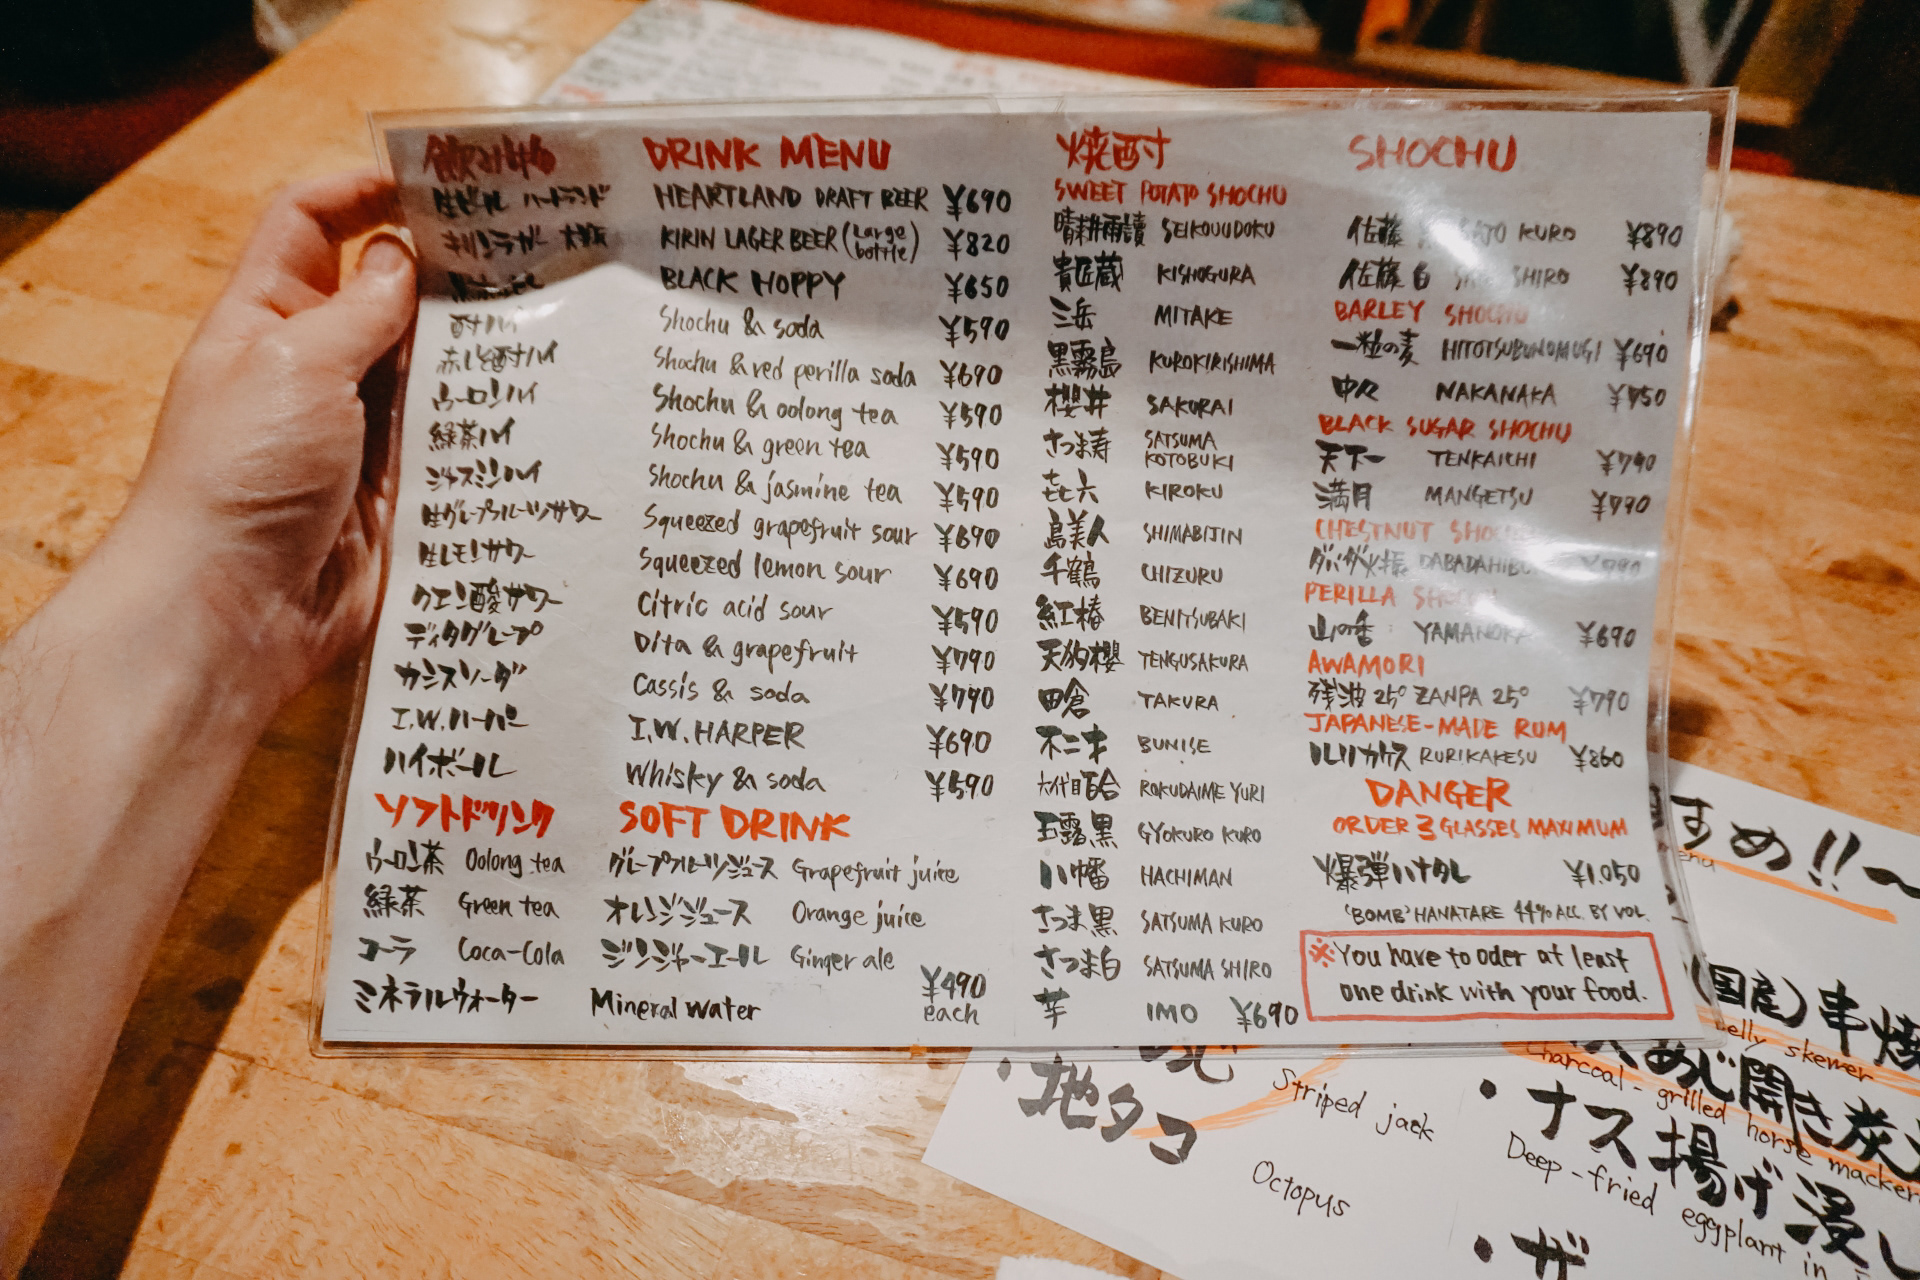 飲み物 DRINK MENU
生ビール ハートランド HEARTLAND DRAFT BEER ¥690
キリンラガー 大瓶 KIRIN LAGER BEER (Large bottle) ¥820
BLACK HOPPY ¥650
酎ハイ Shochu & soda ¥590
赤しそ酎ハイ Shochu & red perilla soda ¥690
ウーロンハイ Shochu & oolong tea ¥590
緑茶ハイ Shochu & green tea ¥590
ジャスミンハイ Shochu & jasmine tea ¥590
生グレープフルーツサワー Squeezed grapefruit sour ¥690
生レモンサワー Squeezed lemon sour ¥690
クエン酸サワー Citric acid sour ¥590
ディタグレープ Dita & grapefruit ¥790
カシスソーダ Cassis & soda ¥790
I.W.ハーパー I.W.HARPER ¥690
ハイボール Whisky & soda ¥590
ソフトドリンク SOFT DRINK
ウーロン茶 Oolong tea グレープフルーツジュース Grapefruit juice
緑茶 Green tea オレンジジュース Orange juice
コーラ Coca-Cola ジンジャーエール Ginger ale
ミネラルウォーター Mineral water ¥490 each
焼酎 SHOCHU
SWEET POTATO SHOCHU
晴耕雨讀 SEIKOUUDOKU
貴匠蔵 KISHOGURA
三岳 MITAKE
黒霧島 KUROKIRISHIMA
櫻井 SAKURAI
さつま寿 SATSUMA KOTOBUKI
㐂六 KIROKU
島美人 SHIMABIJIN
千鶴 CHIZURU
紅椿 BENITSUBAKI
天狗櫻 TENGUSAKURA
田倉 TAKURA
不二才 BUNISE
六代目百合 ROKUDAIME YURI
玉露黒 GYOKURO KURO
八幡 HACHIMAN
さつま黒 SATSUMA KURO
さつま白 SATSUMA SHIRO
芋 IMO ¥690
佐藤 SATO KURO ¥890
佐藤 白 SHIRO ¥890
BARLEY SHOCHU
一粒の麦 HITOTSUBUNOMUGI ¥690
中々 NAKANAKA ¥750
BLACK SUGAR SHOCHU
天下一 TENKAICHI ¥790
満月 MANGETSU ¥790
CHESTNUT SHOCHU
ダバダ火振 ¥790
PERILLA SHOCHU
山の香 YAMANOKA ¥690
AWAMORI
残波25° ZANPA 25° ¥790
JAPANESE-MADE RUM
ルリカケス RURIKAKESU ¥860
DANGER
ORDER 3 GLASSES MAXIMUM
爆弾ハナタレ ¥1.050
'BOMB' HANATARE 44% ALC. BY VOL.
※You have to oder at least
one drink with your food.
すめ!!～
enu
(国産)串焼
elly skewer
めじ開き炭
Charcoal-grilled horse macker
・ナス揚げ浸し
Deep-fried eggplant in
・ザ
Striped jack
・地タコ
Octopus